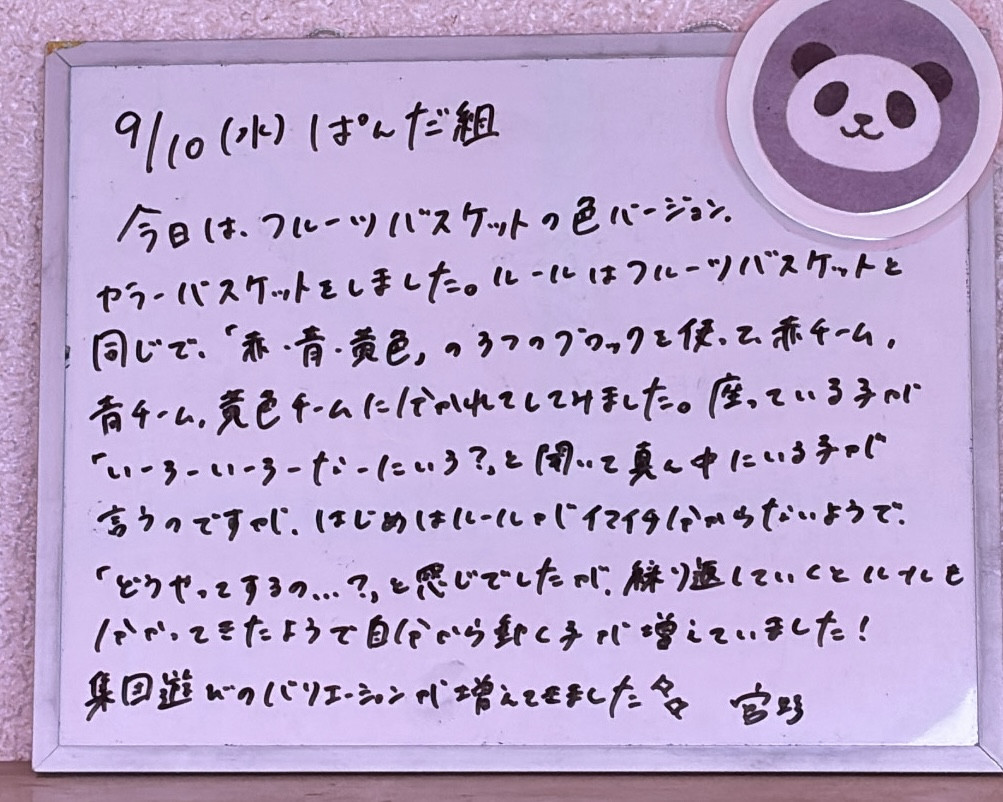 9/10(水) ぱんだ組
今日は、フルーツバスケットの色バージョン、
カラーバスケットをしました。ルールはフルーツバスケットと
同じで、「赤・青・黄色」の3つのブロックを使って、赤チーム、
青チーム、黄色チームに分かれてしてみました。座っている子が
「いーろーいーろーなーにいろ?」と聞いて真ん中にいる子が
言うのですが、はじめはルールがイマイチ分からないようで、
「どうやってするの…?」と感じでしたが、繰り返していくとルールも
分かってきたようで自分から動く子が増えていました!
集団遊びのバリエーションが増えてきました